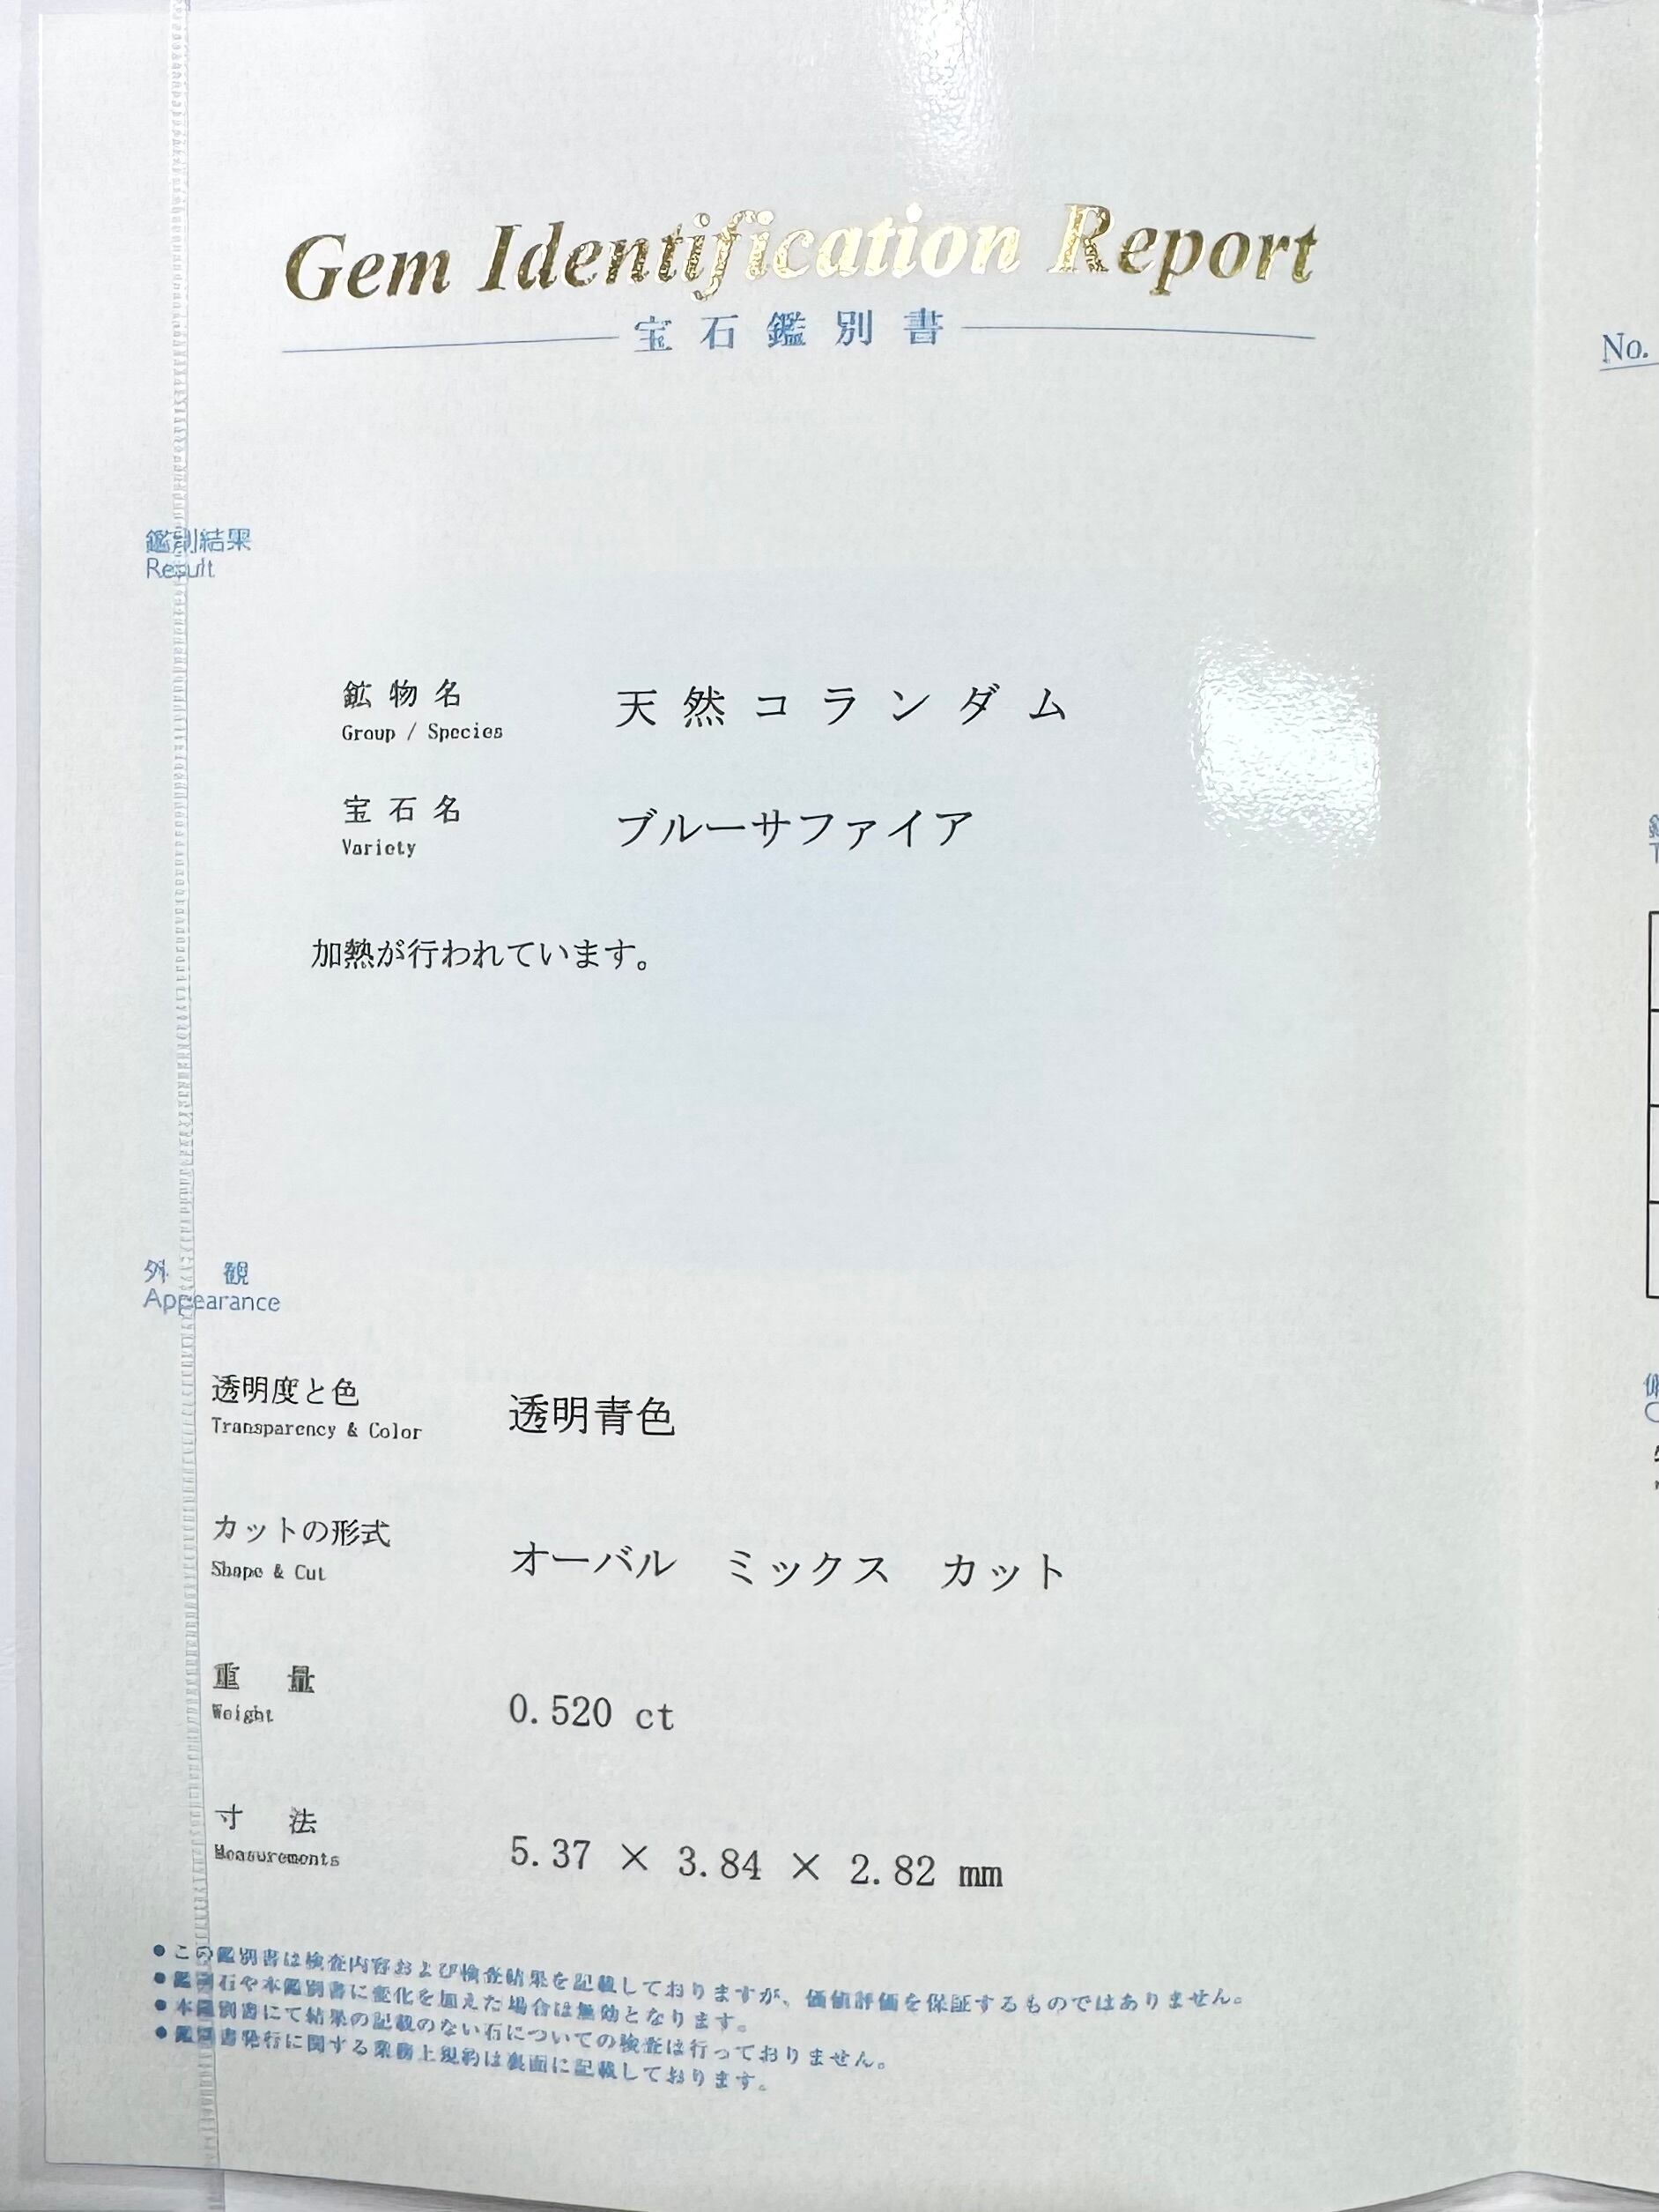 Gem Identification Report
宝石鑑別書
No.
鑑別結果
Result
鉱物名
Group / Species
天然コランダム
宝石名
Variety
ブルーサファイア
加熱が行われています。
外観
Appearance
透明度と色
Transparency & Color
透明青色
カットの形式
Shape & Cut
オーバル ミックス カット
重量
Weight
0.520 ct
寸法
Measurements
5.37 × 3.84 × 2.82 mm
●この鑑別書は検査内容および検査結果を記載しておりますが、価値評価を保証するものではありません。
●鑑別石や本鑑別書に変化を加えた場合は無効となります。
●本鑑別書にて結果の記載のない石についての検査は行っておりません。
●鑑別書発行に関する業務上規約は裏面に記載しております。